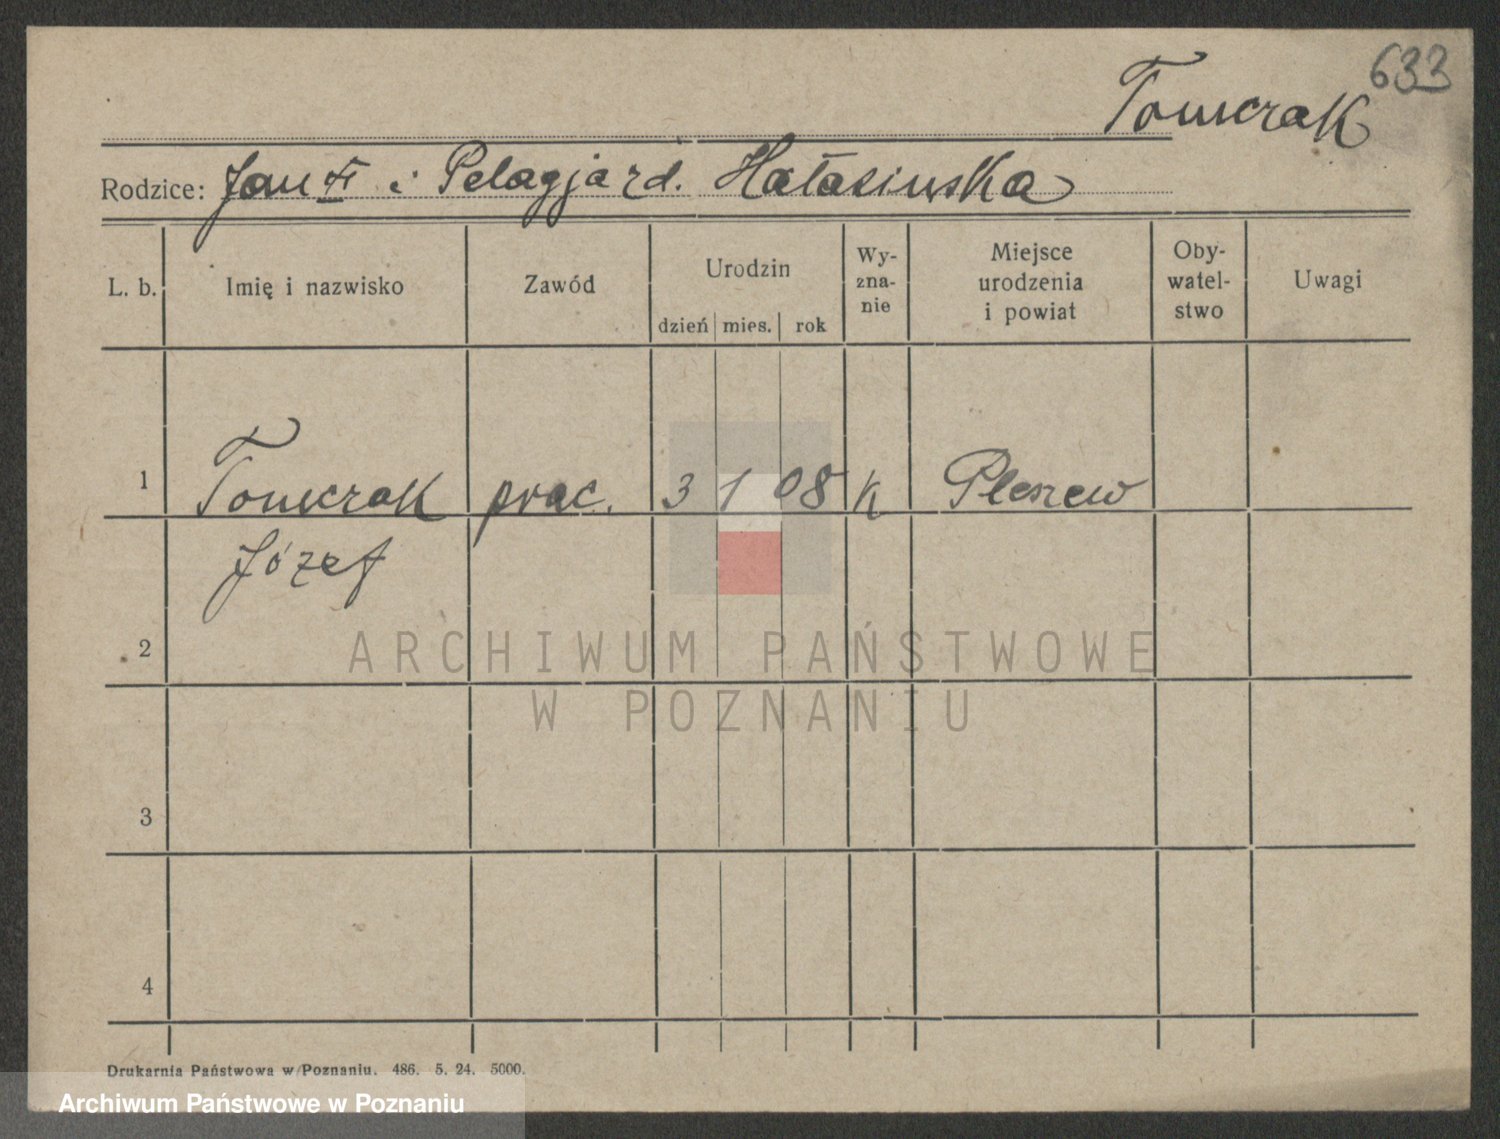 633
Tomczak
Rodzice: Jan i Pelagja zd. Hałasińska
L. b. Imię i nazwisko Zawód Urodzin dzień mies. rok Wy-zna-nie Miejsce urodzenia i powiat Oby-watel-stwo Uwagi
1 Tomczak prac. 3 1 08 k Pleszew
Józef
2
ARCHIWUM PAŃSTWOWE
W POZNANIU
3
4
Drukarnia Państwowa w Poznaniu. 486. 5. 24. 5000.
Archiwum Państwowe w Poznaniu